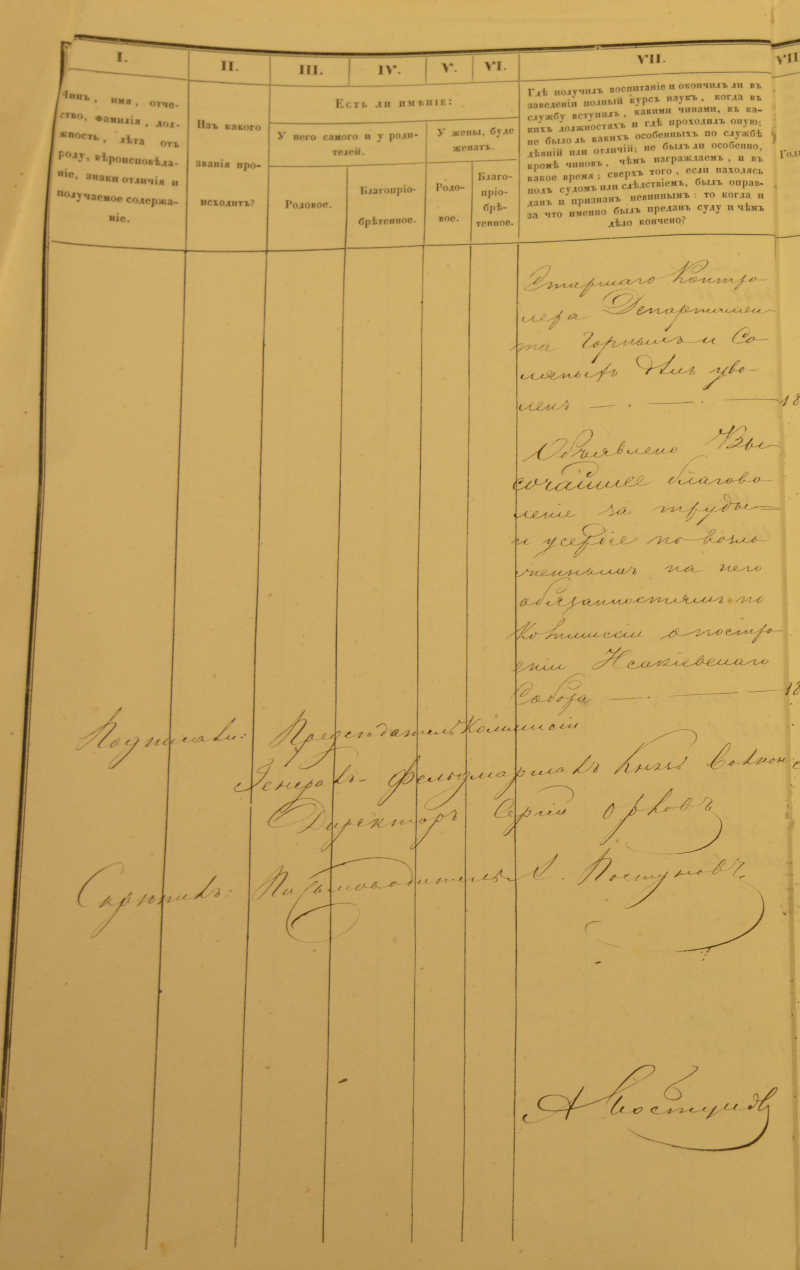 I.
II.
III.
IV.
V.
VI.
VII.
VII
Чинъ, имя, отче-
ство, фамилія, дол-
жность, лѣта отъ
роду, вѣроисповѣда-
ніе, знаки отличія и
получаемое содержа-
ніе.
Изъ какого
званія про-
исходитъ?
Есть ли имѣніе:
У него самого и у роди-
телей.
У жены, буде
женатъ.
Родовое.
Благопріо-
брѣтенное.
Родо-
вое.
Благо-
пріо-
брѣ-
тенное.
Гдѣ получилъ воспитаніе и окончилъ ли въ
заведеніи полный курсъ наукъ, когда въ
службу вступилъ, какими чинами, въ ка-
кихъ должностяхъ и гдѣ проходилъ оную;
не было ль какихъ особенныхъ по службѣ
дѣяній или отличій; не былъ ли особенно,
кромѣ чиновъ, чѣмъ награждаемъ, и въ
какое время; сверхъ того, если находясь
подъ судомъ или слѣдствіемъ, былъ оправ-
данъ и признанъ невиннымъ: то когда и
за что именно былъ преданъ суду и чѣмъ
дѣло кончено?
Годъ
Старшаго Контро-
лера Департамен-
та Горныхъ и Со-
ляныхъ Дѣлъ уво-
ленъ — . — . — 18
Объявлено Вы-
сочайшее благово-
леніе за труды
и усердіе по возло-
женнымъ на него
обязанностямъ по
Коммисіи о постро-
еніи Исакіевскаго
Собора — . — 18
Подписали: Предсѣдатель Коммисіи
Генералъ-Фельдмаршалъ Князь Волкон
Директоръ
Орловъ
Скрѣпилъ: Письмоводитель А. Постуновъ